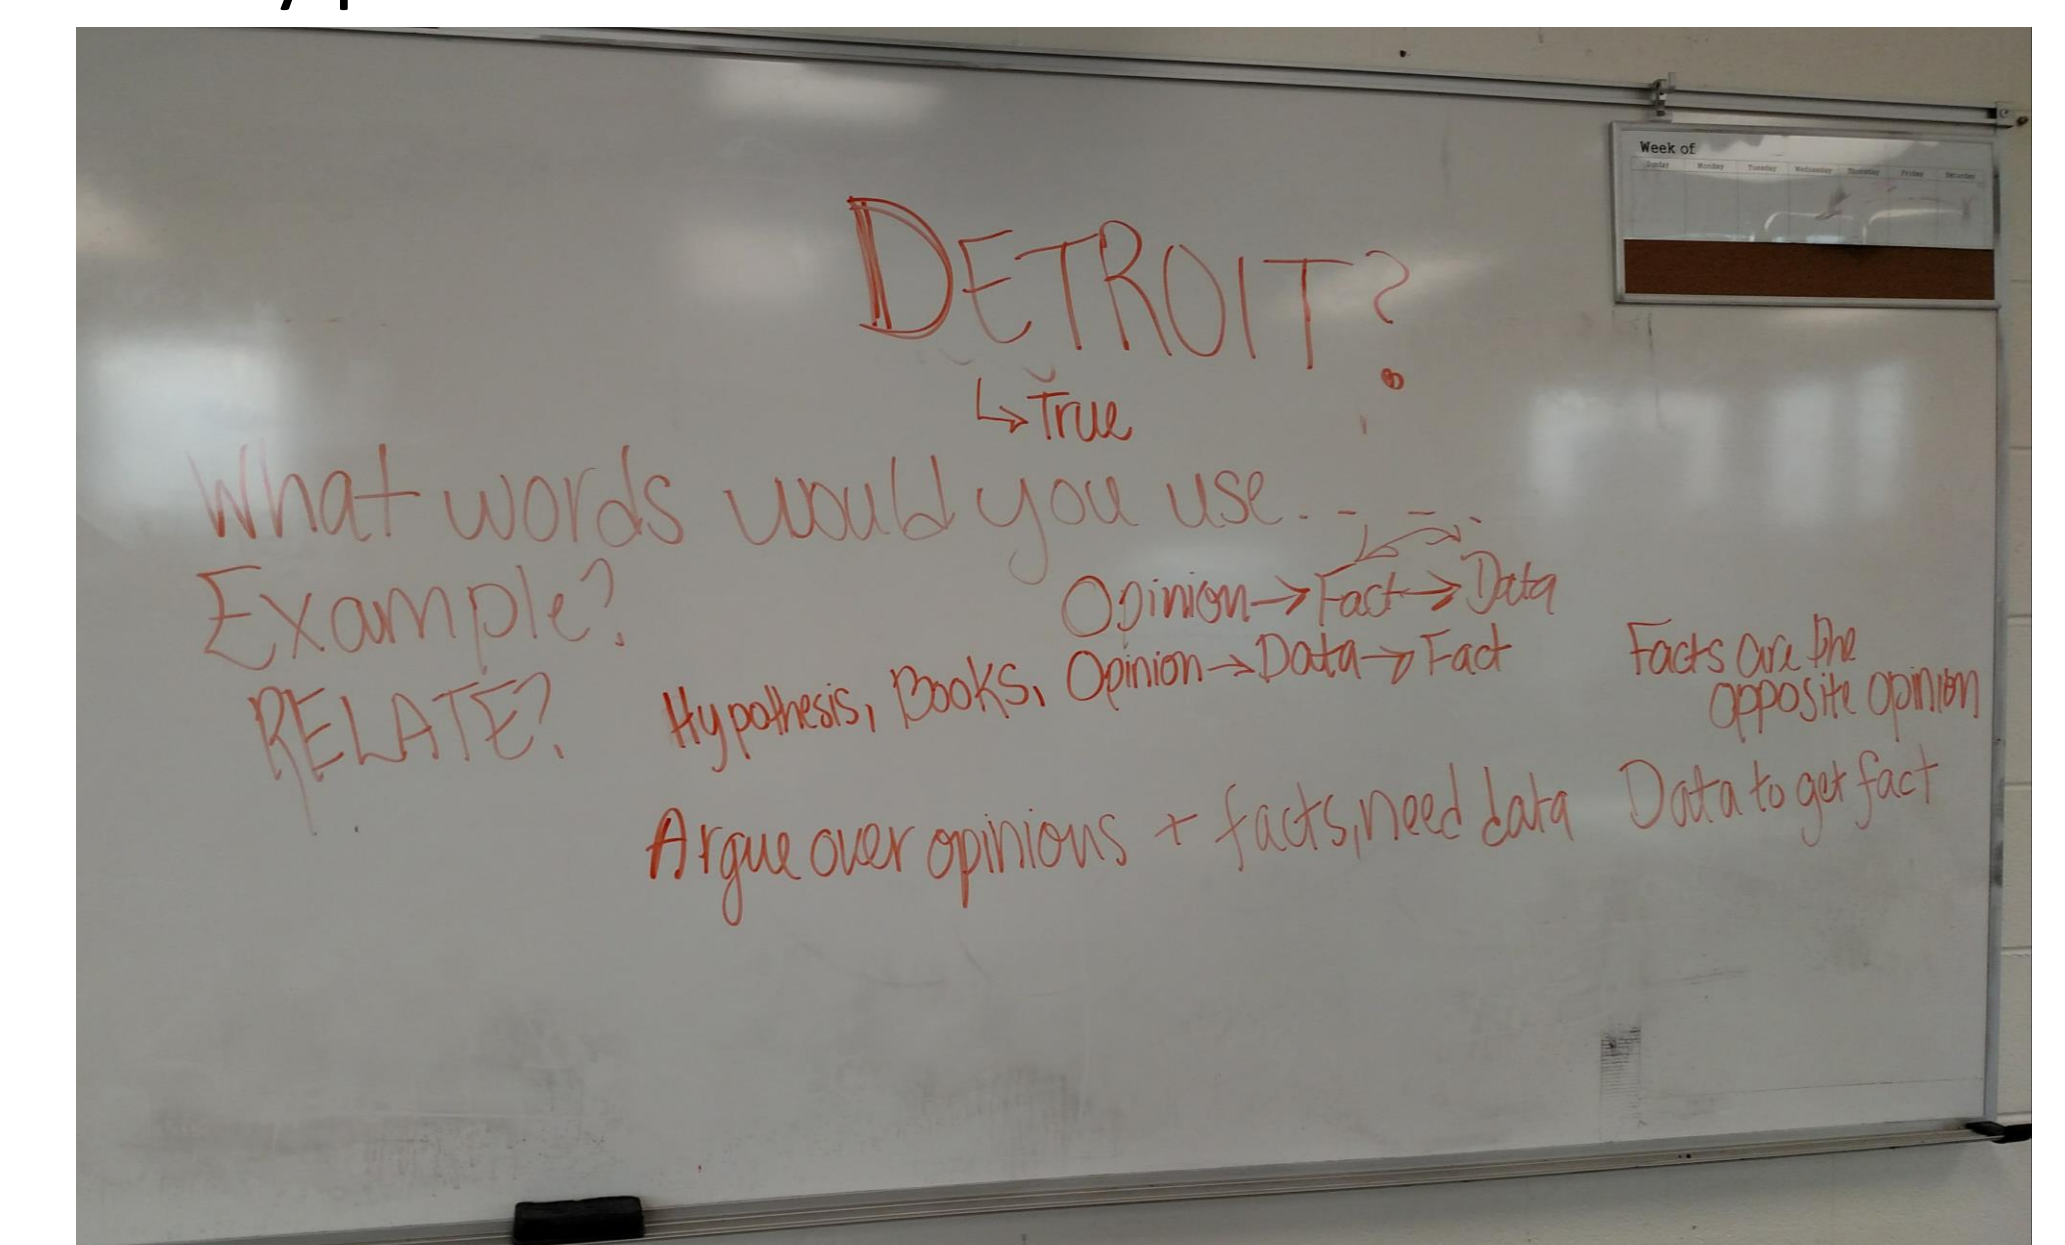 Week of
Sunday Monday Tuesday Wednesday Thursday Friday Saturday
DETROIT?
↳ True
What words would you use. - - -
Example?
Opinion → Fact → Data
RELATE?
Hypothesis, Books, Opinion → Data → Fact
Facts are the
opposite opinion
Argue over opinions + facts, need data
Data to get fact